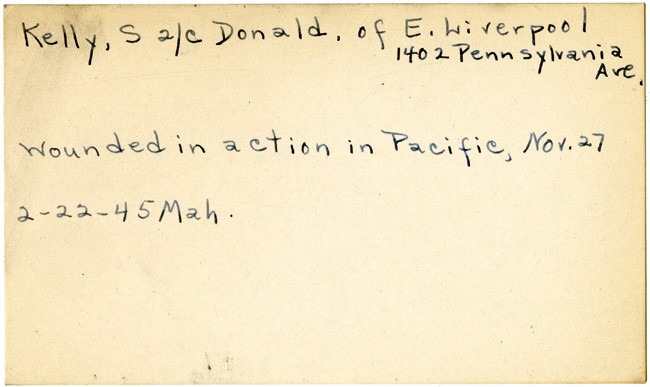 Kelly, S 2/c Donald, of E. Liverpool
1402 Pennsylvania
Ave.
Wounded in action in Pacific, Nov. 27
2-22-45 Mah.